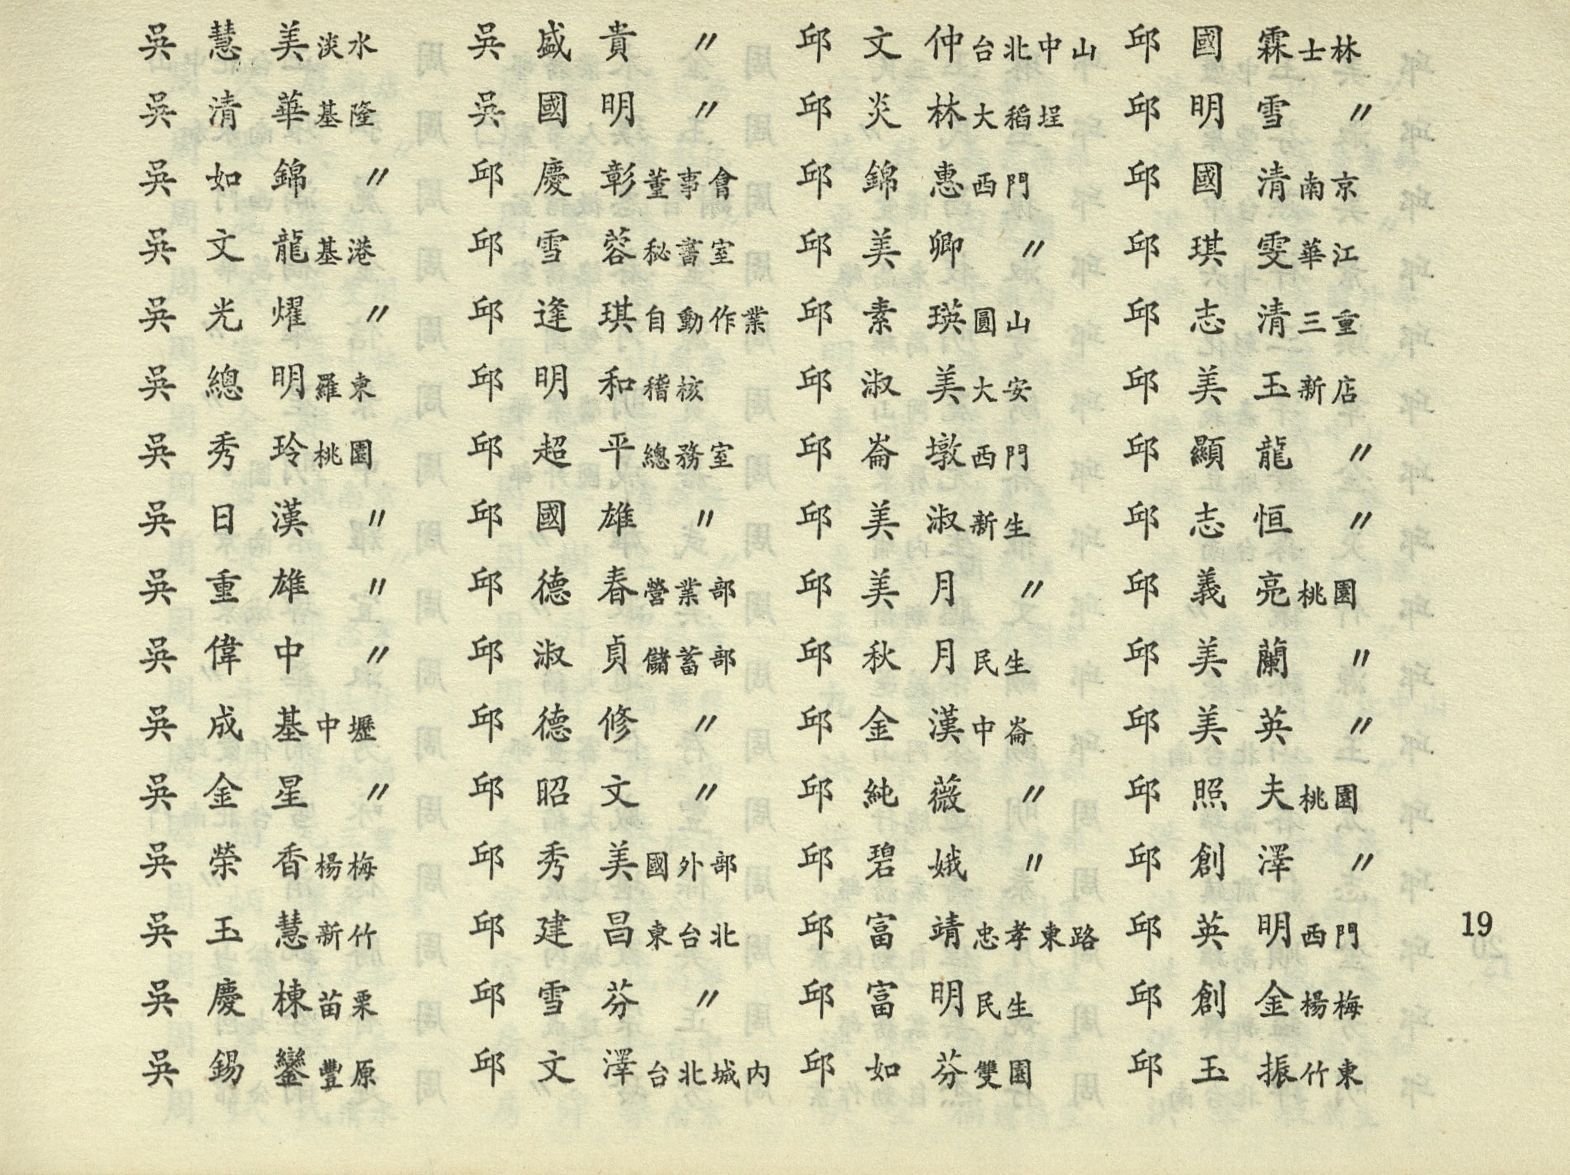 吳慧美淡水
吳清華基隆
吳如錦 〃
吳文龍基港
吳光燿 〃
吳總明羅東
吳秀玲桃園
吳日漢 〃
吳重雄 〃
吳偉中 〃
吳成基中壢
吳金星 〃
吳榮香楊梅
吳玉慧新竹
吳慶棟苗栗
吳錫鑾豐原
吳盛貴 〃
吳國明 〃
邱慶彰董事會
邱雪蓉秘書室
邱逢琪自動作業
邱明和稽核
邱超平總務室
邱國雄 〃
邱德春營業部
邱淑貞儲蓄部
邱德修 〃
邱昭文 〃
邱秀美國外部
邱建昌東台北
邱雪芬 〃
邱文澤台北城內
邱文仲台北中山
邱炎林大稻埕
邱錦惠西門
邱美卿 〃
邱素瑛圓山
邱淑美大安
邱崙墩西門
邱美淑新生
邱美月 〃
邱秋月民生
邱金漢中崙
邱純薇 〃
邱碧娥 〃
邱富靖忠孝東路
邱富明民生
邱如芬雙園
邱國霖士林
邱明雪 〃
邱國清南京
邱琪雯華江
邱志清三重
邱美玉新店
邱顯龍 〃
邱志恒 〃
邱義亮桃園
邱美蘭 〃
邱美英 〃
邱照夫桃園
邱創澤 〃
邱英明西門
邱創金楊梅
邱玉振竹東
19